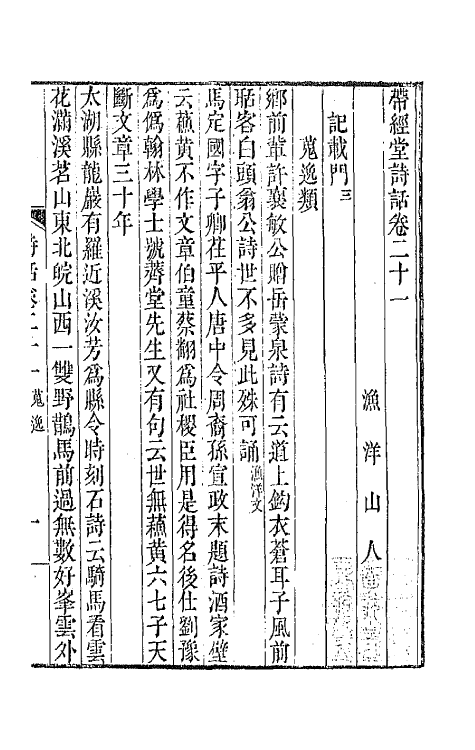 帶經堂詩話卷二十一
漁洋山人
記載門三
蒐逸類
鄉前輩許襄敏公贈岳蒙泉詩有云道上鉤衣蒼耳子風前
聒客白頭翁公詩世不多見此殊可誦漁洋文
馬定國字子卿茌平人唐中令周裔孫宣政末題詩酒家壁
云蘓黃不作文章伯童蔡翻爲社稷臣用是得名後仕劉豫
爲僞翰林學士號薺堂先生又有句云世無蘓黃六七子天
斷文章三十年
太湖縣龍巖有羅近溪汝芳爲縣令時刻石詩云騎馬看雲
花滿溪茗山東北皖山西一雙野鵲馬前過無數好峯雲外
詩話卷二十一 蒐逸 一